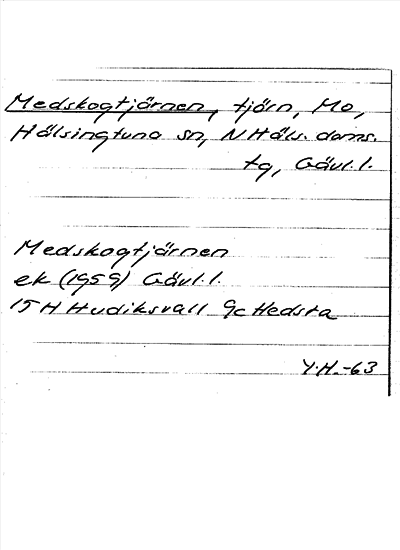 Medskogtjärnen, tjärn, Mo,
Hälsingtuna sn, N Häls. doms.
tg, Gävl.l.
Medskogtjärnen
ek (1959) Gävl.l.
15 H Hudiksvall 9c Hedsta
Y.H. -63